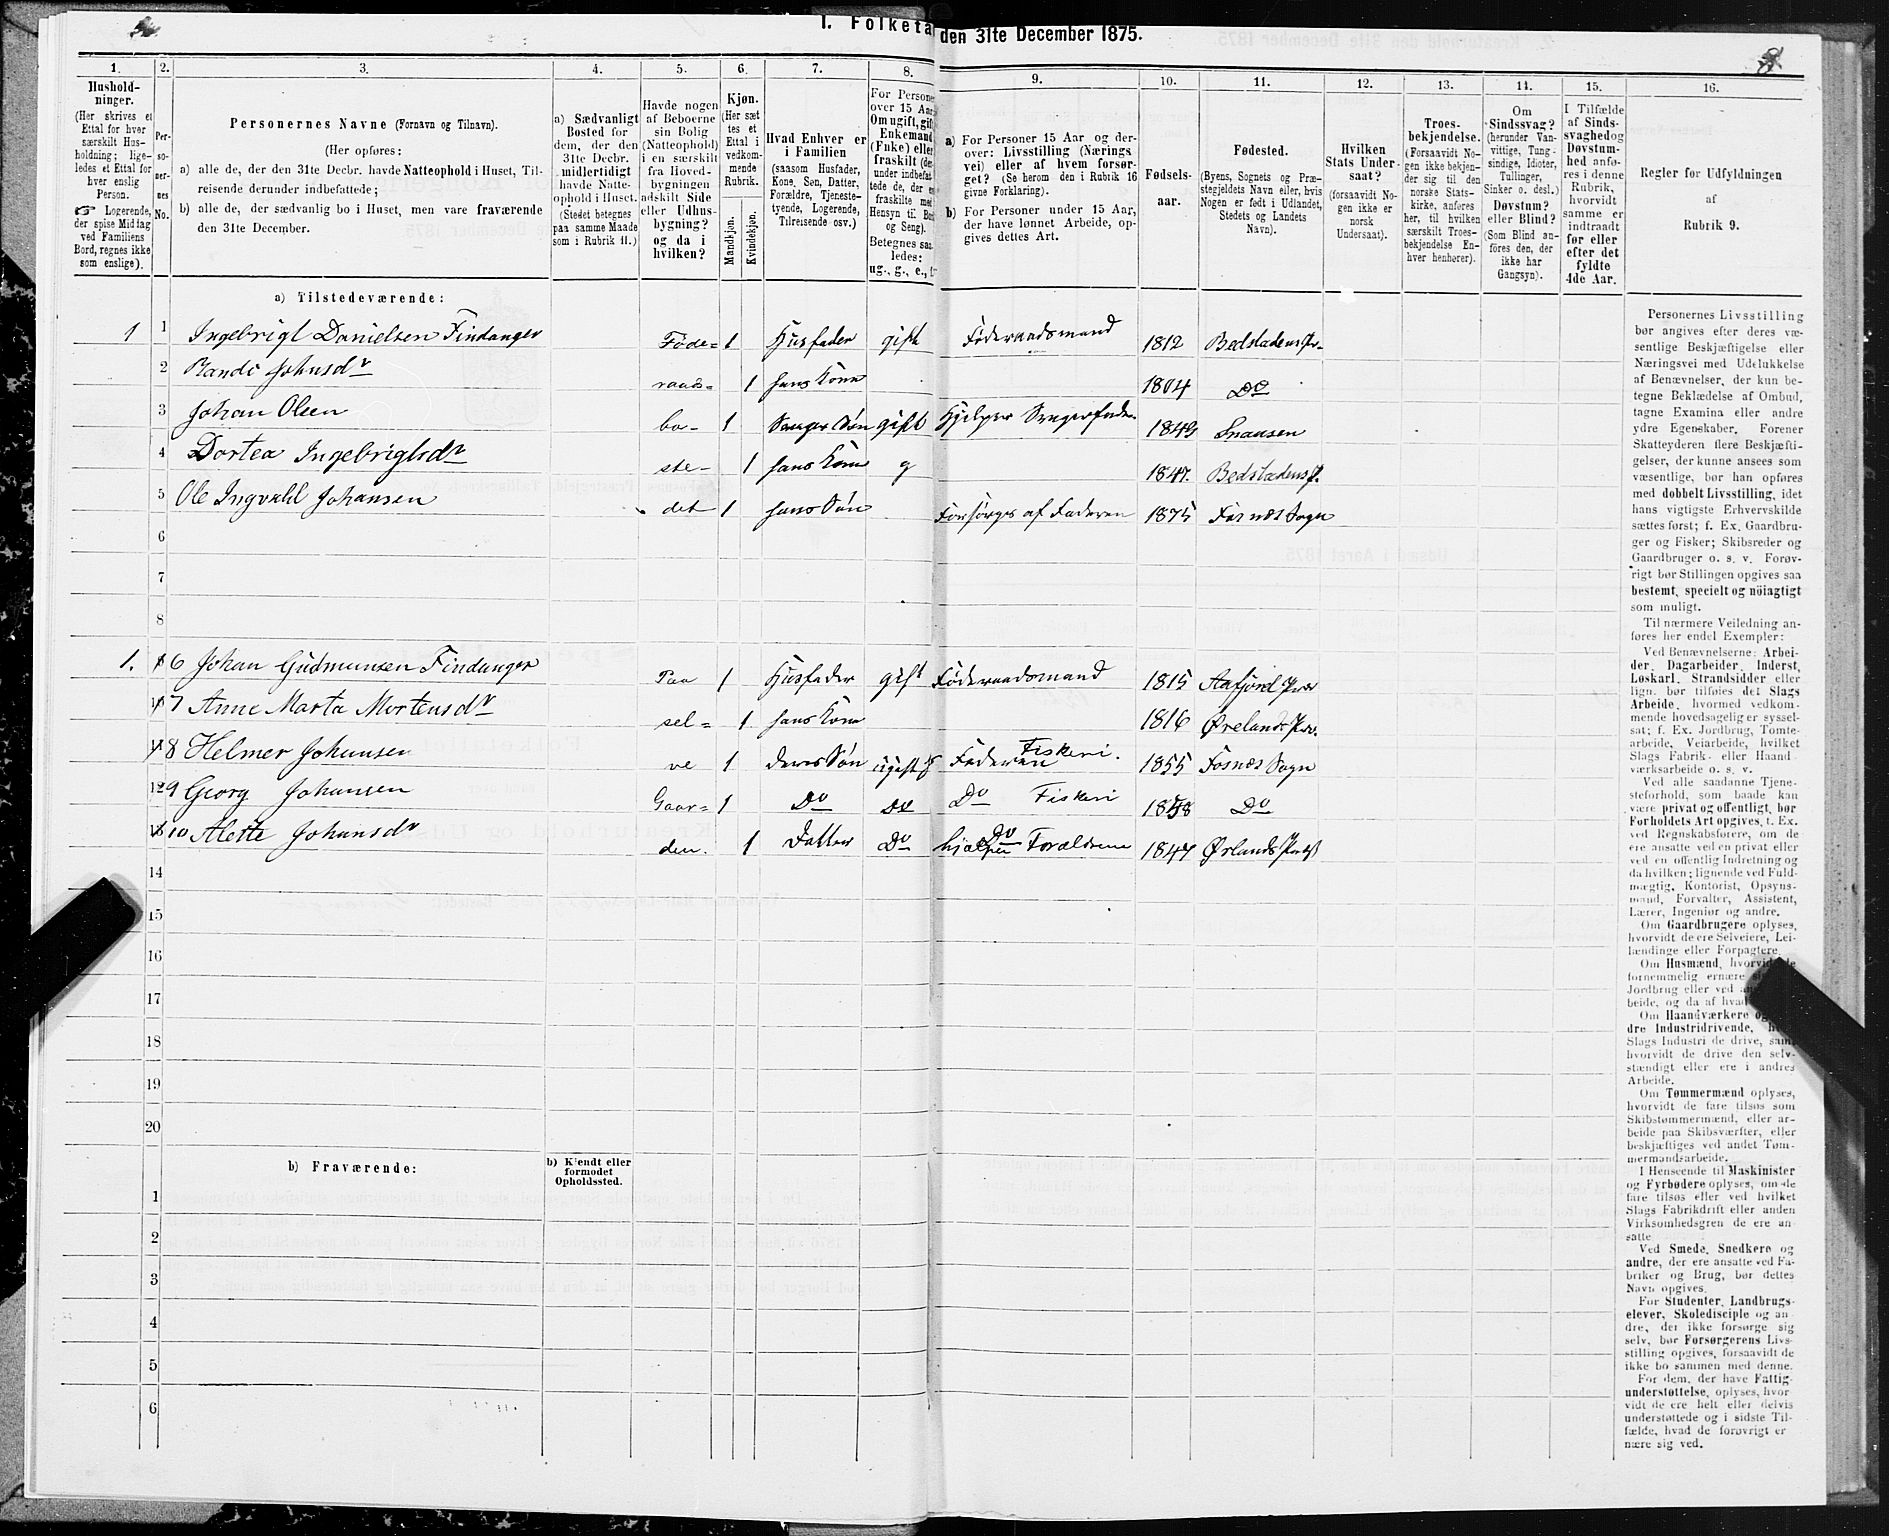 I. Folketa den 31te December 1875.
1. 2. 3. 4. 5. 6. 7. 8. 9. 10. 11. 12. 13. 14. 15. 16.
Hushold-
ninger.
(Her skrives et
Ettal for hver
særskilt Hus-
holdning; lige-
ledes et Ettal for
hver enslig
Person.
☞ Logerende,
der spise Middag
ved Familiens
Bord, regnes ikke
som enslige).
Per-
so-
ner-
nes
No.
Personernes Navne (Fornavn og Tilnavn).
(Her opføres:
a) alle de, der den 31te Decbr. havde Natteophold i Huset, Til-
reisende derunder indbefattede;
b) alle de, der sædvanlig bo i Huset, men vare fraværende
den 31te December.
a) Sædvanligt
Bosted for
dem, der den
31te Decbr.
midlertidigt
havde Natte-
ophold i Huset.
(Stedet betegnes
paa samme Maade
som i Rubrik 11.)
Havde nogen
af Beboerne
sin Bolig
(Natteophold)
i en særskilt
fra Hoved-
bygningen
adskilt Side
eller Udhus-
bygning?
og da i
hvilken?
Kjøn.
(Her sæt
tes et
Ettal i
vedkom-
mende
Rubrik.
Mandkjøn.
Kvindekjøn.
Hvad Enhver er
i Familien
(saasom Husfader,
Kone, Søn, Datter,
Forældre, Tjeneste-
tyende, Logerende,
Tilreisende osv.)
For Persone
over 15 Aar
Om ugift, gift
Enkemand
(Enke) eller
fraskilt (de
under indbefat
tede de, der e
fraskilte med
Hensyn til Bord
og Seng).
Betegnes saa
ledes:
ug., g., e., f
a) For Personer 15 Aar og der-
over: Livsstilling (Nærings
vei) eller af hvem forsør-
get? (Se herom den i Rubrik 16
givne Forklaring).
b) For Personer under 15 Aar,
der have lønnet Arbeide, op-
gives dettes Art.
Fødsels-
aar.
Fødested.
(Byens, Sognets og Præ-
stegjeldets Navn eller, hvis
Nogen er født i Udlandet,
Stedets og Landets
Navn).
Hvilken
Stats Under-
saat?
(forsaavidt No-
gen ikke er
norsk
Undersaat).
Troes-
bekjendelse.
(Forsaavidt No-
gen ikke bekjen-
der sig til den
norske Stats-
kirke, anføres
her, til hvilken
særskilt Troes-
bekjendelse En-
hver henhører).
Om
Sindssvag?
(herunder Van-
vittige, Tung-
sindige, Idioter,
Tullinger,
Sinker o. desl.)
Døvstum?
eller Blind?
(Som Blind an-
føres den, der
ikke har
Gangsyn).
I Tilfælde
af Sinds-
svaghed og
Døvstum-
hed anfø-
res i denne
Rubrik,
hvorvidt
samme er
indtraadt
før eller
efter det
fyldte
4de Aar.
Regler for Udfyldningen
af
Rubrik 9.
a) Tilstedeværende:
1 1 Ingebrigt Danielsen Findanger Føde= 1 Husfader gift Føderaadsmand 1812 Bedstadens Pr.
2 Randi Johnsdr raads= 1 hans Kone 1804 Do
3 Johan Olsen bo- 1 Svigersøn gift Hjelper Svigerfader 1849 Snaasen
4 Dortea Ingebrigtsdr ste- 1 hans Kone g 1847. Bedstadens P.
5 Ole Ingvald Johansen det 1 hans Søn Forsørges af Faderen 1875 Fosnæs Sogn
6
7
8
1. 6 Johan Gudmunsen Findanger Paa 1 Husfader gift Føderaadsmand 1815 Aafjord Præ
7 Anne Marta Mortensdr sel= 1 hans Kone 1816 Ørelands Præ.
8 Helmer Johansen ve 1 deres Søn ugift Faderen Fiskeri. 1855 Fosnæs Sogn
9 Georg Johansen Gaar= 1 Do Do Do Fiskeri 1858 Do
10 Alette Johansdr den. 1 Datter Do hjælper Do Forældrene 1847 Ørlands Præst
14
15
16
17
18
19
20
b) Fraværende:
b) Kjendt eller
formodet
Opholdssted.
1
2
3
4
5
6
Personernes Livsstilling
bør angives efter deres væ-
sentlige Beskjæftigelse eller
Næringsvei med Udelukkelse
af Benævnelser, der kun be-
tegne Beklædelse af Ombud,
tagne Examina eller andre
ydre Egenskaber. Forener
Skatteyderen flere Beskjæfti-
gelser, der kunne ansees som
væsentlige, bør han opføres
med dobbelt Livsstilling, idet
hans vigtigste Erhvervskilde
sættes først; f. Ex. Gaardbru-
ger og Fisker; Skibsreder og
Gaardbruger o. s. v. Forøv-
rigt bør Stillingen opgives saa
bestemt, specielt og nöiagtigt
som muligt.
Til nærmere Veiledning an-
føres her endel Exempler:
Ved Benævnelserne: Arbei-
der, Dagarbeider, Inderst,
Løskarl, Strandsidder eller
lign. bør tilføies det Slags
Arbeide, hvormed vedkom-
mende hovedsagelig er syssel-
sat; f. Ex. Jordbrug, Tomte-
arbeide, Veiarbeide, hvilket
Slags Fabrik- eller Haand
værksarbeide o. s. v.
Ved alle saadanne Tjene-
steforhold, som baade kan
være privat og offentligt, bør
Forholdets Art opgives, t. Ex.
ved Regnskabsførere, om de
ere ansatte ved en privat eller
ved en offentlig Indretning og
da hvilken; lignende ved Fuld-
mægtig, Kontorist, Opsyns-
mand, Forvalter, Assistent,
Lærer, Ingeniør og andre.
Om Gaardbrugere oplyses,
hvorvidt de ere Selveiere, Lei-
lændinge eller Forpagtere.
Om Husmænd, hvorvidt de
fornemmelig ernære
Jordbrug eller ved
beide, og da af hvad
Om Haandværkere og
dre Industridrivende,
Slags Industri de drive, samt
hvorvidt de drive den selv-
stændigt eller ere i andres
Arbeide.
Om Tømmermænd oplyses,
hvorvidt de fare tilsøs som
Skibstømmermænd, eller ar-
beide paa Skibsværfter, eller
beskjæftiges ved andet Tøm-
mermandsarbeide.
I Henseende til Maskinister
og Fyrbødere oplyses, om de
fare tilsøs eller ved hvilket
Slags Fabrikdrift eller anden
Virksomhedsgren de ere an-
satte
Ved Smede, Snedkere og
andre, der ere ansatte ved Fa-
briker og Brug, bør dettes
Navn opgives.
For Studenter, Landbrugs-
elever, Skoledisciple og an-
dre, der ikke forsørge sig
selv, bør Forsørgerens Livs-
stilling opgives, forsaavidt de
ikke bo sammen med denne.
For dem, der have Fattig-
understøttelse, oplyses, hvor
vidt de ere helt eller delvis
understøttede og i sidste Til-
fælde, hvad de forøvrigt er
nære sig ved.